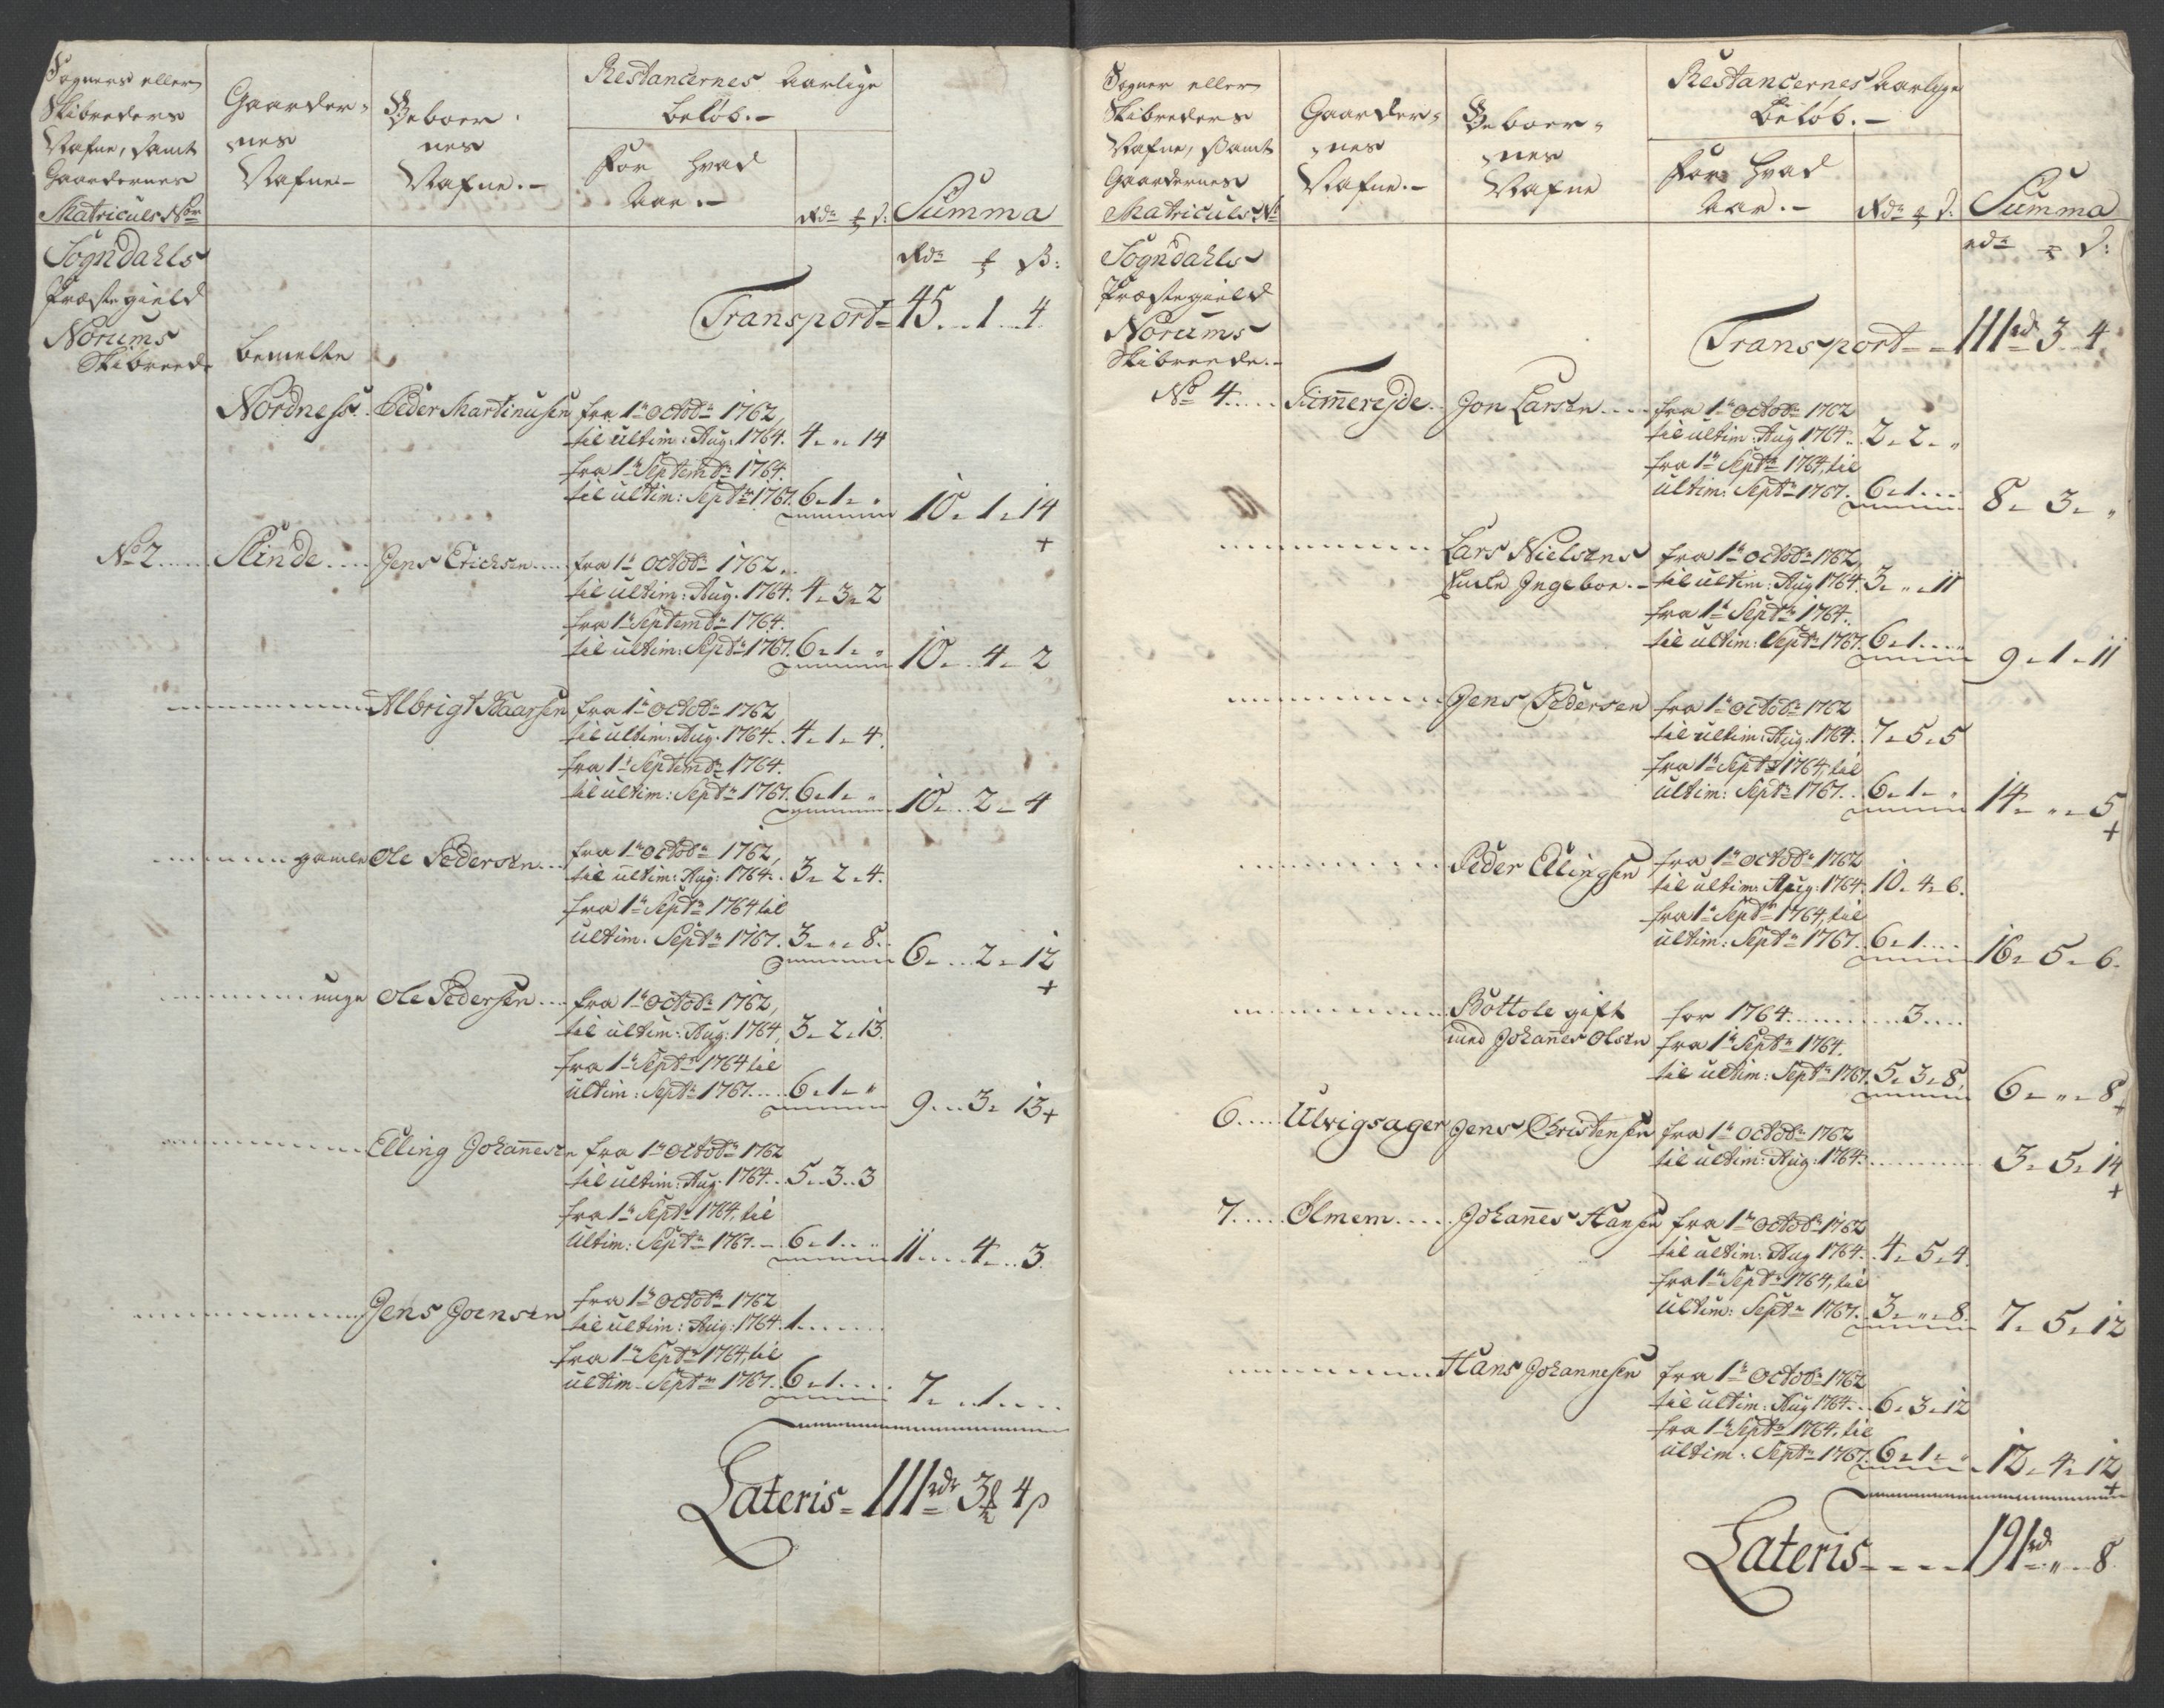 Sogners eller
Skibreders
Nafne, samt
Gaardernes
Matriculs No
Gaarder-
nes
Nafne
Beboer-
nes
Nafne.
Restancernes Aarlige
Beløb.
For hvad
Aar.
Summa
Sogndahls
Præstegield
Norums
Skibreede
bemelte
Transport 45 " 1 " 4
Nordness Peder Martinusen fra 1te Octobr 1762,
til ultim: Aug: 1764. 4 " " 14
fra 1te Septembr 1764.
til ultim: Septbr 1767. 6 " 1 " " 10 " 1 " 14
No 2 Slinde Jens Erichsen fra 1te Octobr 1762
til ultim: Aug. 1764. 4 " 3 " 2
fra 1te Septembr 1764.
til ultim: Septbr 1767. 6 " 1 " " 10 " 4 " 2
Albrigt fra 1te Octobr 1762,
til ultim: Aug. 1764. 4 " 1 " 4.
fra 1te Septembr 1764.
til ultim: Septbr 1767. 6 " 1 " " 10 " 2 " 4
gamle Ole Pedersen fra 1te Octobr 1762,
til ultim: Aug: 1764. 3 " 2 " 4.
fra 1te Septbr 1764 til
ultim. Septbr 1767. 3 " " 8 6 " 2 " 12
unge Ole Pedersen fra 1te Octobr 1762,
til ultim: Aug: 1764, 3 " 2 " 13.
fra 1te Septbr 1764 til
ultim: Septbr 1767. 6 " 1 " " 9 " 3 " 13
Elling Johannesen fra 1te Octobr 1762
til ultim: Aug. 1764. 5 " 3 " 3
fra 1te Septbr 1764, til
Ultim: Septbr 1767. 6 " 1 " " 11 " 4 " 3.
Jens Joensen fra 1te Octobr 1762
til ultim: Aug: 1764. 1
fra 1te Septbr 1764, til
ultim. Septbr 1767. 6 " 1 7 " 1
Lateris 111 rdr 3 4 s
Sogner eller
Skibreders
Nafne, samt
Gaardernes
Matriculs No
Gaarder-
nes
Nafne.
Beboer-
nes
Nafne
Restancernes Aarlige
Beløb.
For hvad
Aar.
Summa
Sogndahls
Præstegield
Norums
Skibreede.
Transport 111 rdr 3 " 4
No 4 Timmereide Jon Larsen fra 1te Octobr 1762
til ultim: Aug 1764. 2 " 2 " "
fra 1te Septbr 1764, til
ultim: Septbr 1767. 6 " 1 8 " 3 " "
Lars Nielsens fra 1te Octobr 1762,
Enke Ingebor. til ultim: Aug 1764. 3 " " 11
fra 1te Septbr 1764.
til ultim: Septbr 1767. 6 " 1 9 " 1 " 11
Jens Pedersen fra 1te Octobr 1762
til ultim: Aug: 1764. 7 " 5 " 5
fra 1te Septbr 1764, til
ultim: Septbr 1767. 6 " 1 " 14 " " 5
Peder Ellingsen fra 1te Octobr 1762
til ultim: Aug: 1764. 10 " 4 " 6.
fra 1te Septbr 1764, til
ultim: Septbr 1767. 6 " 1 16 " 5 " 6.
Bottole gift for 1764. 3
med Johannes Olsen fra 1te Septbr 1764.
til ultim: Septbr 1767. 5 " 3 " 8. 6 " " 8
6 Ulvigsager Jens Christensen fra 1te Octobr 1762
til ultim: Aug: 1764. 3 " 5 " 14
7. Ølmem Johannes Hansen fra 1te Octobr 1762
til ultim: Aug 1764. 4 " 5 " 4.
fra 1te Septbr 1764, til
ultim: Septbr 1767. 3 " " 8. 7 " 5 " 12
Hans Johannesen fra 1te Octobr 1762
til ultim: Aug 1764. 6 " 3 " 12
fra 1te Septbr 1764, til
ultim: Septbr 1767. 6 " 1 " " 12 " 4 " 12
Lateris 191 rd " 8